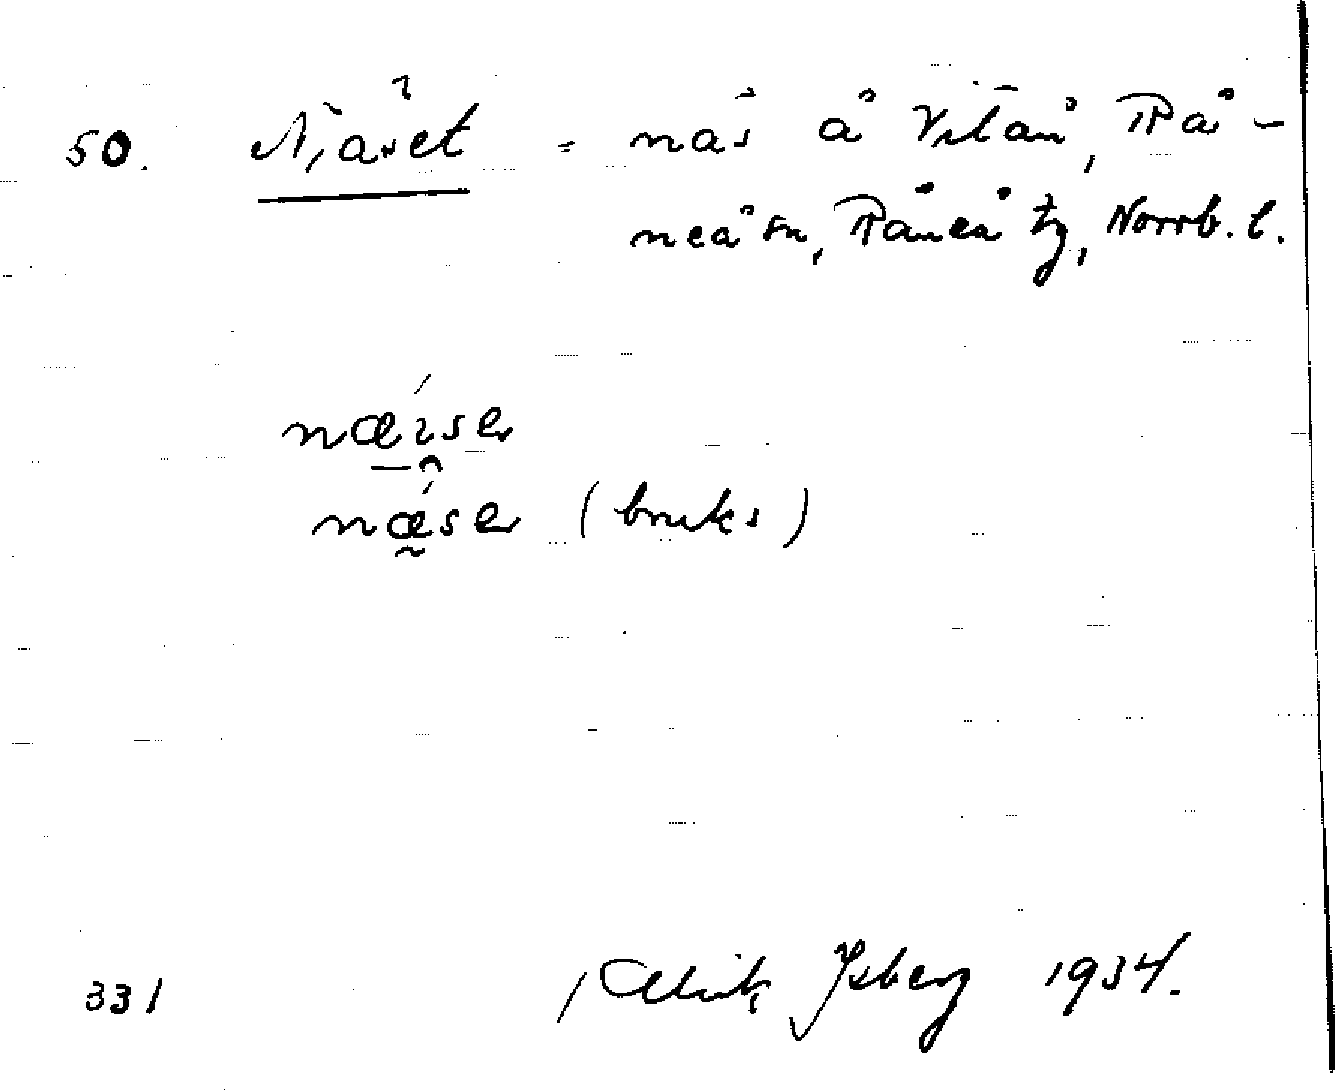 50. Näset = näs å Vitån, Rå-
neå sn, Råneå tg, Norrb. l.
næ̀ise
næse (bruks)
331 Ulrik Isberg 1934.